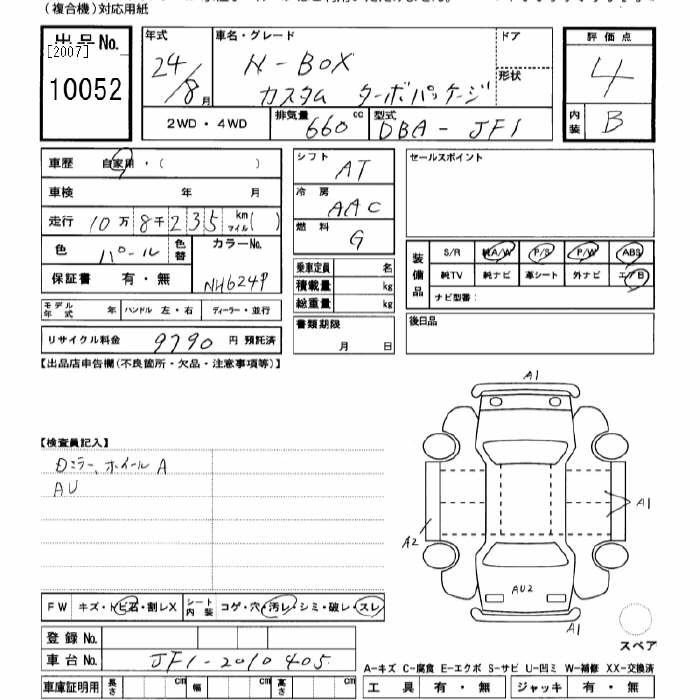 (複合機)対応用紙
出品No.
[2007]
10052
年式
24/8月
車名・グレード
N-BOX
カスタム ターボパッケージ
ドア
形状
評価点
4
内装
B
2WD・4WD
排気量
660cc
型式
DBA-JF1
車歴 自家用・( )
車検 年 月
走行 10万8千235 km マイル( )
色 パール
色替
カラーNo.
NH624P
保証書 有・無
モデル年式 年 ハンドル 左・右 ディーラー・並行
リサイクル料金 9790 円 預託済
シフト AT
冷房 AAC
燃料 G
乗車定員 名
積載量 kg
総重量 kg
書類期限
月 日
セールスポイント
装備品
S/R 純A/W P/S P/W ABS
純TV 純ナビ 革シート 外ナビ エアB
ナビ型番:
後日品
【出品店申告欄(不良箇所・欠品・注意事項等)】
【検査員記入】
Dミラー、ホイールA
AU
A1
A1
A2
AU2
A1
スペア
FW キズ・トビ石・割レX シート内装 コゲ・穴・汚レ・シミ・破レ・スレ
登録No.
車台No. JF1-2010405
車庫証明用 長さ cm 幅 cm 高さ cm
A-キズ C-腐食 E-エクボ S-サビ U-凹ミ W-補修 XX-交換済
工具 有・無 ジャッキ 有・無